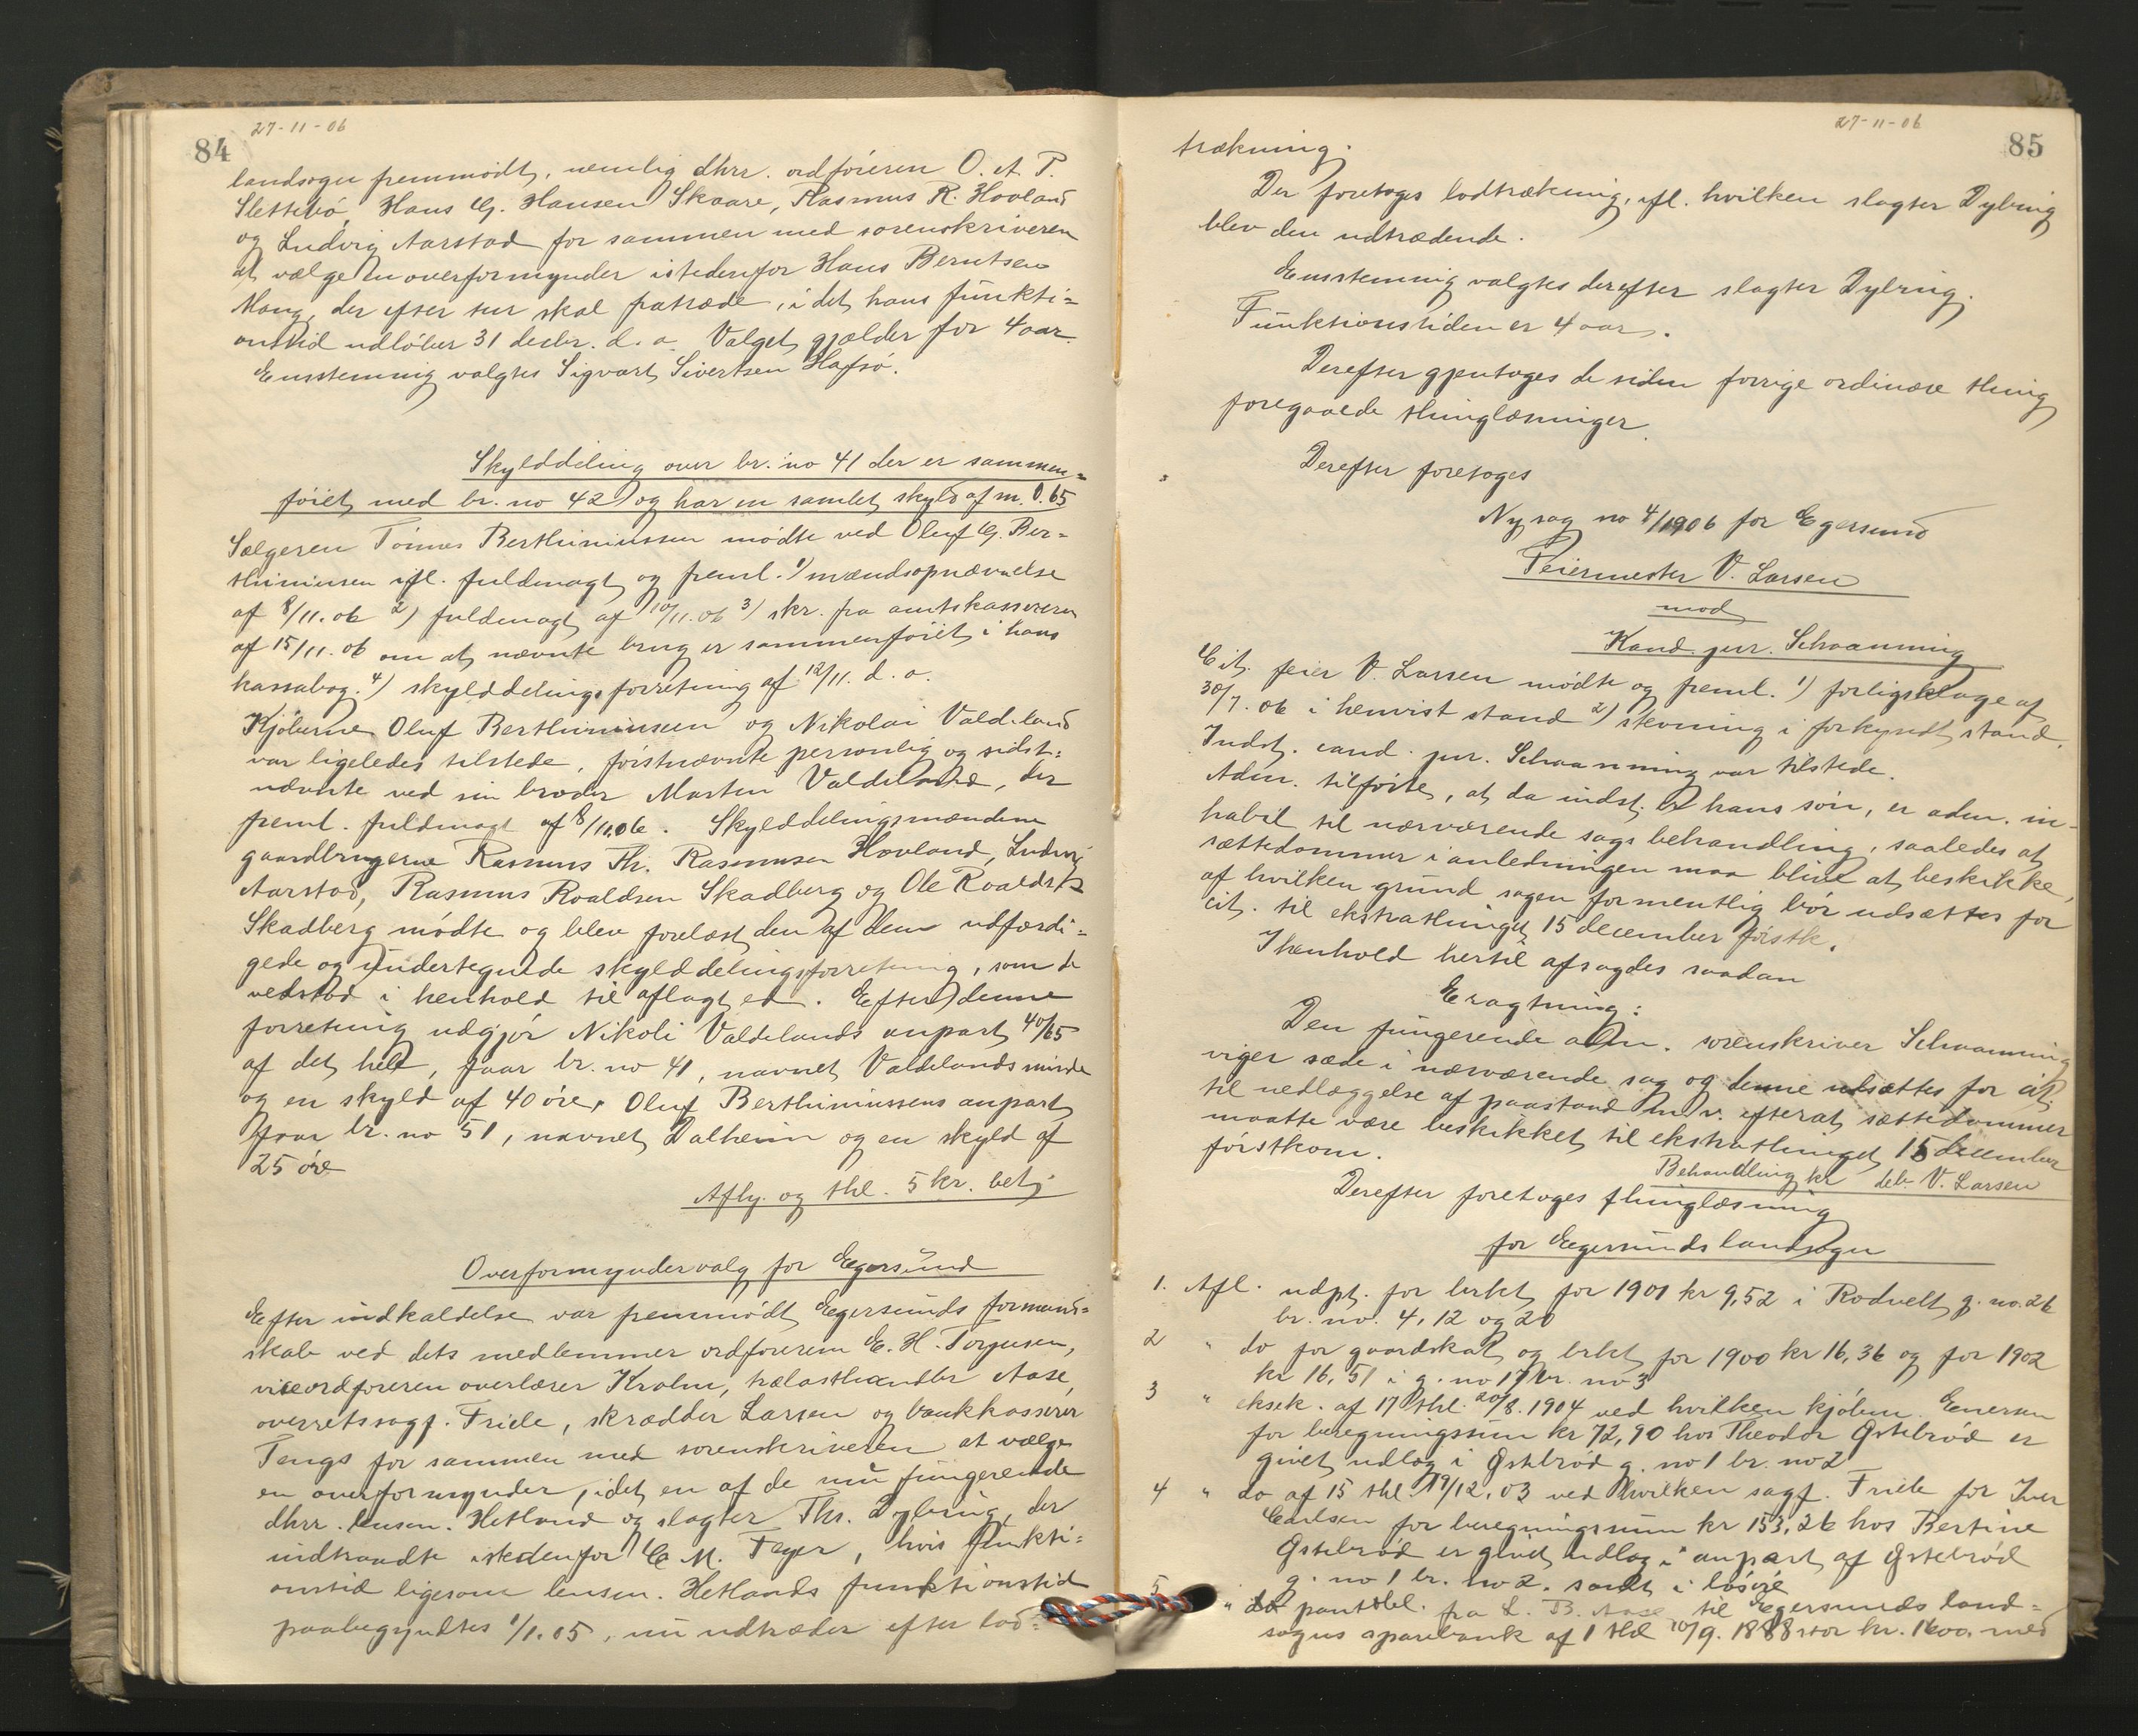 84
27-11-06
landsogn fremmødt, nemlig dhrr. ordføreren O. A. P.
Slettebø, Hans G. Hansen Skaare, Rasmus R. Hovland
og Ludvig Aarstad for sammen med sorenskriveren
at vælge en overformynder istedenfor Hans Berntsen
Mong, der efter tur skal fratræde, i det hans funkti=
onstid udløber 31 decbr. d. a. Valget gjælder for 4 aar.
Eensstemmig valgtes Sigvart Sivertsen Hafsø.
Skylddeling over br. no 41 der er sammen=
føiet med br. no 42 og har en samlet skyld af m. 0.65
Sælgeren Tønnes Berthiniussen mødte ved Oluf G. Ber=
thiniusen ifl. fuldmagt og freml. 1) mændsopnævnelse
af 8/11.06 2) fuldmagt af 10/11.06 3) skr. fra amtskassereren
af 15/11.06 om at nævnte brug er sammenføiet i hans
kassabog. 4) skylddelingsforretning af 12/11. d. a.
Kjøberne Oluf Berthiniussen og Nikolai Valdeland
var ligeledes tilstede, førstnævnte personlig og sidst=
nævnte ved sin broder Morten Valdeland, der
freml. fuldmagt af 8/11.06. Skylddelingsmændene
gaardbrugerne Rasmus Th. Rasmusen Hovland, Ludvig
Aarstad, Rasmus Roaldsen Skadberg og Ole Roaldsen
Skadberg mødte og blev forelæst den af dem udfærdi=
gede og undertegnede skylddelingsforretning, som de
vedstod i henhold til aflagt ed. Efter denne
forretning udgjør Nikoli Valdelands anpart 40/65
af det hele, faar br. no 41, navnet Valdelandsminde
og en skyld af 40 øre. Oluf Berthiniussens anpart
faar br. no 51, navnet Dalheim og en skyld af
25 øre
Afhj. og thl. 5 kr. bet.
Overformyndervalg for Egersund
Efter indkaldelse var fremmødt Egersunds formand=
skab ved dets medlemmer ordføreren E. H. Torjusen,
viceordføreren overlærer Krohn, trælasthandler Aase,
overretssagf. Friele, skrædder Larsen og bankkasserer
Tengs for sammen med sorenskriveren at vælge
en overformynder, idet en af de nu fungerende
dhrr. lensm. Hetland og slagter Ths. Dybing, der
indtraadte istedenfor C. M. Feyer, hvis funkti=
onstid ligesom lensm. Hetlands funktionstid
paabegyndtes 1/1.05, nu udtræder efter lod=
27-11-06
85
trækning.
Der foretoges lodtrækning, ifl. hvilken slagter Dybing
blev den udtrædende.
Eensstemmig valgtes derefter slagter Dybing.
Funktionstiden er 4 aar.
Derefter gjentoges de siden forrige ordinære thing
foregaaede thinglæsninger.
Derefter foretoges
Ny sag no 4/1906 for Egersund
Feiermester V. Larsen
mod
Kand. jur. Schaanning
Cit. feier V. Larsen mødte og freml. 1) forligsklage af
30/7.06 i henvist stand 2) stevning i forkyndt stand.
Indst. cand. jur. Schaanning var tilstede.
Adm. tilførte, at da indst. er hans søn, er adm. in-
habil til nærværende sags behandling, saaledes at
sættedommer i anledningen maa blive at beskikke,
af hvilken grund sagen formentlig bør udsættes for
cit. til ekstrathinget 15 december førstk.
I henhold hertil afsagdes saadan
Eragtning:
Den fungerende adm. sorenskriver Schaanning
viger sæde i nærværende sag og denne udsættes for cit.
til nedlæggelse af paastand m. v. efterat sættedommer
maatte være beskikket til ekstrathinget 15 december
førstkom.
Behandling kr deb. V. Larsen
Derefter foretoges thinglæsning
for Egersunds landsogn
1. Afl. udpt. for brkt for 1901 kr 9,52 i Rodvelt g. no. 26
br. no. 4, 12 og 20
2 " do for gaardskat og brkt for 1900 kr 16,36 og for 1902
kr 16,51 i g. no 17 br. no 3
3 " eksek. af 17 thl. 20/8. 1904 ved hvilken kjøbm. Enersen
for beregningssum kr 72,90 hos Theodor Østebrød er
givet udlæg i Østebrød g. no 1 br. no 2
4 " do af 15 thl. 19/12.03 ved hvilken sagf. Friele for Iver
Carlsen for beregningssum kr 153,26 hos Bertine
Østebrød er givet udlæg i anpart af Østebrød
g. no 1 br. no 2. samt i løsøre
5 " do pantobl. fra L. B. Aase til Egersunds land=
sogns sparebank af 1 thl 10/9. 1888 stor kr. 1600. med